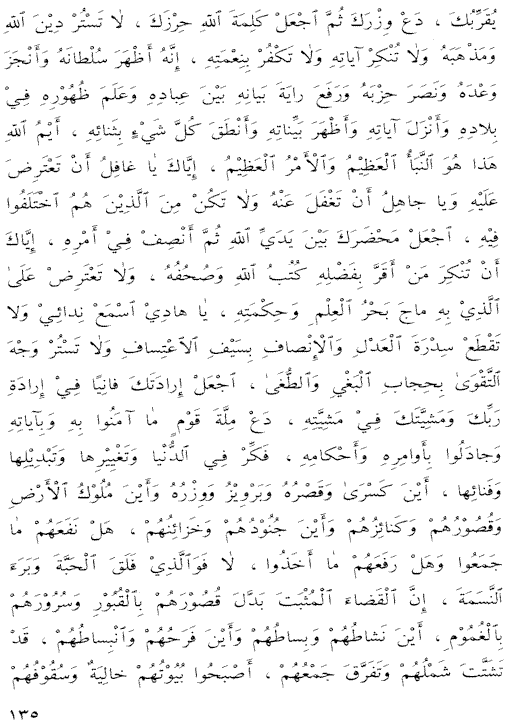 يُقَرِّبُكَ ، دَعْ وِزْرَكَ ثُمَّ ٱجْعَلْ كَلِمَةَ ٱللّٰهِ حِرْزَكَ ، لَا تَسْتُرْ دِيْنَ ٱللّٰهِ
وَمَذْهَبَهُ وَلَا تُنْكِرْ آيَاتِهِ وَلَا تَكْفُرْ بِنِعْمَتِهِ ، إِنَّهُ أَظْهَرَ سُلْطَانَهُ وَأَنْجَزَ
وَعْدَهُ وَنَصَرَ حِزْبَهُ وَرَفَعَ رايَةَ بَيَانِهِ بَيْنَ عِبادِهِ وَعَلَمَ ظُهُوْرِهِ فِيْ
بِلادِهِ وَأَنْزَلَ آياتِهِ وَأَظْهَرَ بَيِّناتِهِ وَأَنْطَقَ كُلَّ شَيْءٍ بِثَنائِهِ ، أَيْمُ ٱللّٰهِ
هَذا هُوَ ٱلنَّبَأُ ٱلْعَظِيْمُ وَٱلْأَمْرُ ٱلْعَظِيْمُ ، إِيَّاكَ يَا غافِلُ أَنْ تَعْتَرِضَ
عَلَيْهِ وَيا جاهِلُ أَنْ تَغْفَلَ عَنْهُ وَلَا تَكُنْ مِنَ ٱلَّذِيْنَ هُمُ ٱخْتَلَفُوا
فِيْهِ ، ٱجْعَلْ مَحْضَرَكَ بَيْنَ يَدَيِّ ٱللّٰهِ ثُمَّ أَنْصِفْ فِيْ أَمْرِهِ ، إِيَّاكَ
أَنْ تُنْكِرَ مَنْ أَقَرَّ بِفَضْلِهِ كُتُبُ ٱللّٰهِ وَصُحُفُهُ ، وَلَا تَعْتَرِضْ عَلَىٰ
ٱلَّذِيْ بِهِ ماجَ بَحْرُ ٱلْعِلْمِ وَحِكْمَتِهِ ، يَا هادِيْ ٱسْمَعْ نِدائِيْ وَلَا
تَقْطَعْ سِدْرَةَ ٱلْعَدْلِ وَٱلْإِنْصافِ بِسَيْفِ ٱلاعْتِسافِ وَلَا تَسْتُرْ وَجْهَ
ٱلتَّقْوَىٰ بِحِجابِ ٱلْبَغْيِ وَٱلطُّغَىٰ ، ٱجْعَلْ إِرادَتَكَ فانِيًا فِيْ إِرادَةِ
رَبِّكَ وَمَشِيَّتَكَ فِيْ مَشِيَّتِهِ ، دَعْ مِلَّةَ قَوْمٍ مَا آمَنُوا بِهِ وَبِآياتِهِ
وَجادَلُوا بِأَوامِرِهِ وَأَحْكامِهِ ، فَكِّرْ فِي ٱلدُّنْيا وَتَغْيِيْرِها وَتَبْدِيْلِها
وَفَنائِها ، أَيْنَ كَسْرَىٰ وَقَصْرُهُ وَبَرْوِيْزُ وَوِزْرُهُ وَأَيْنَ مُلُوْكُ ٱلْأَرْضِ
وَقُصُوْرُهُمْ وَكَنائِزُهُمْ وَأَيْنَ جُنُوْدُهُمْ وَخَزائِنُهُمْ ، هَلْ نَفَعَهُمْ مَا
جَمَعُوا وَهَلْ رَفَعَهُمْ مَا أَخَذُوا ، لَا فَوَٱلَّذِيْ فَلَقَ ٱلْحَبَّةَ وَبَرَءَ
ٱلنَّسَمَةَ ، إِنَّ ٱلْقَضاءَ ٱلْمُثْبَتَ بَدَّلَ قُصُوْرَهُمْ بِٱلْقُبُوْرِ وَسُرُوْرَهُمْ
بِٱلْغُمُوْمِ ، أَيْنَ نَشاطُهُمْ وَبِساطُهُمْ وَأَيْنَ فَرَحُهُمْ وَٱنْبِساطُهُمْ ، قَدْ
تَشَتَّتَ شَمْلُهُمْ وَتَفَرَّقَ جَمْعُهُمْ ، أَصْبَحُوا بُيُوْتُهُمْ خالِيَةٌ وَسُقُوْفُهُمْ
١٣٥